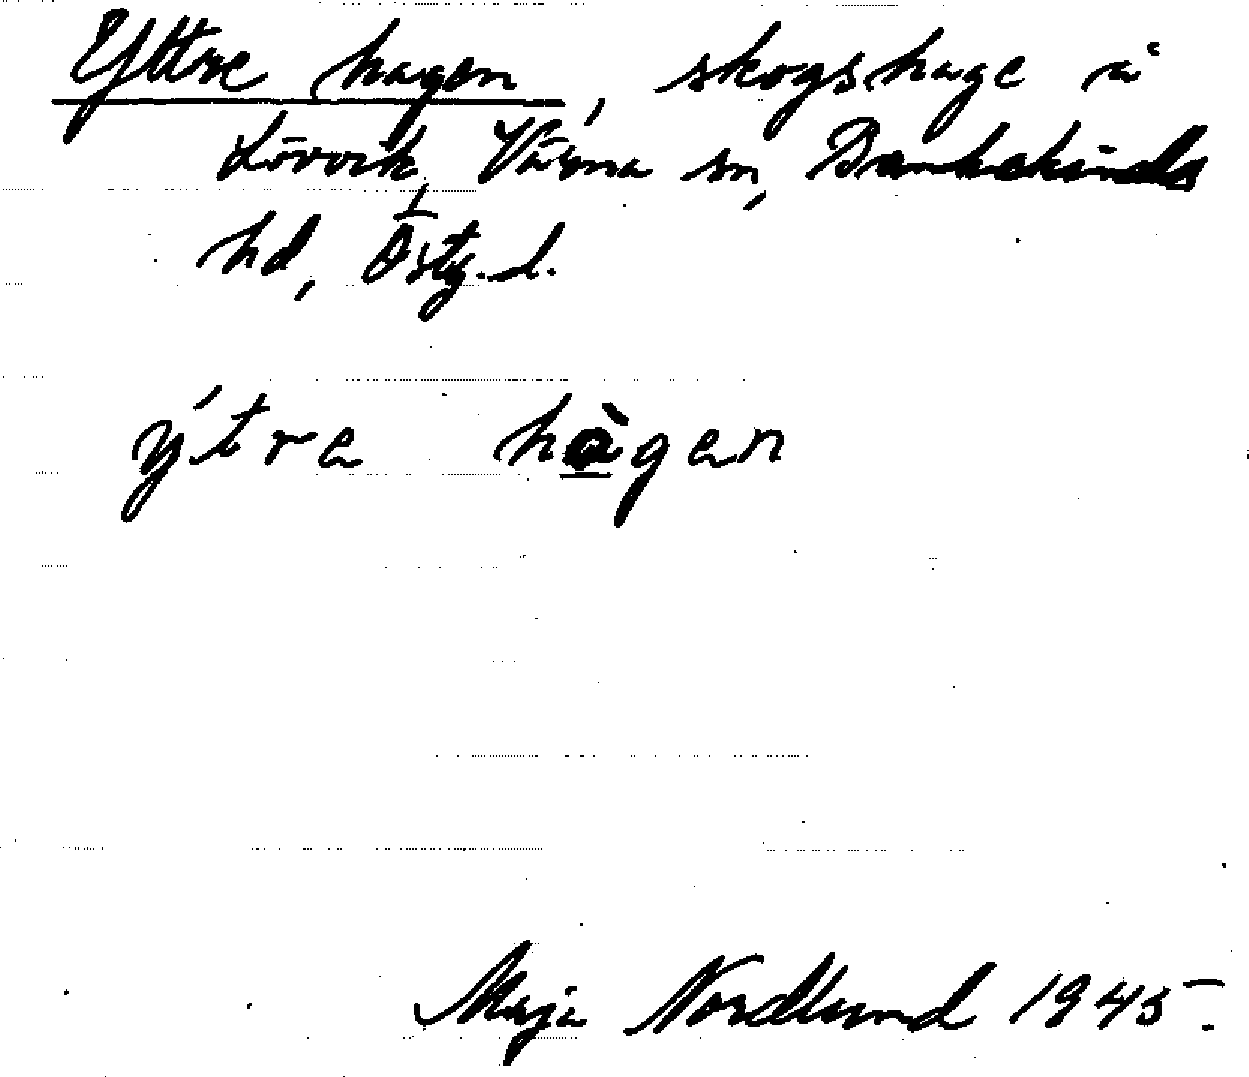 Yttre hagen, skogshage å
Lövvik, Vårna sn, Bankekinds
hd, Östg. l.
ýtra hàgan
Maja Nordlund 1945.